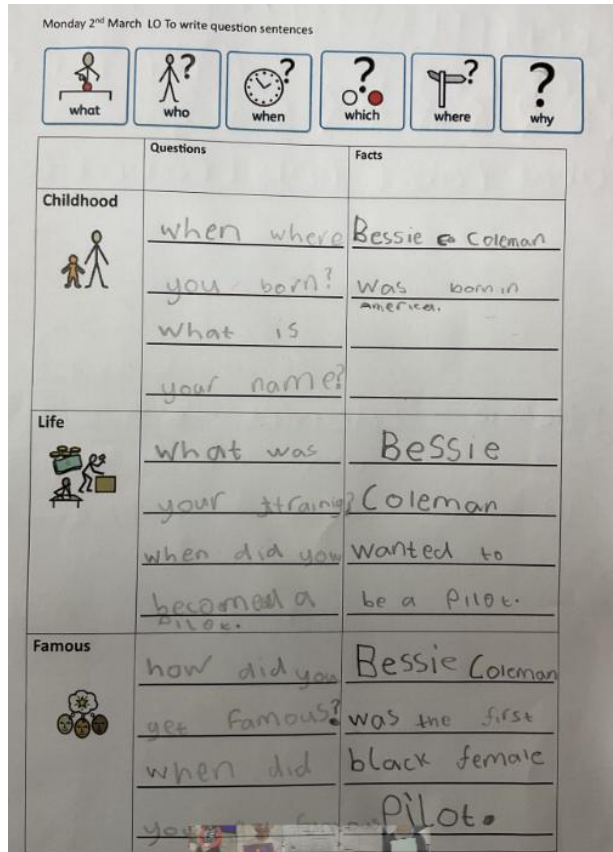 Monday 2nd March LO To write question sentences
what who when which where why
Questions Facts
Childhood
when where
you born?
what is
your name?
Bessie Coleman
was born in
america.
Life
what was
your training?
when did you
becomed a
pilot.
Bessie
Coleman
wanted to
be a pilot.
Famous
how did you
get famous?
when did
you
Bessie Coleman
was the first
black female
Pilot.